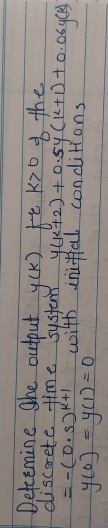 Determine the output y(k) for k>0 of the
discrete time system y(k+2)+0.5y(k+1)+0.06y(k)
= -(0.5)^{k+1} with initial conditions
y(0) = y(1) = 0